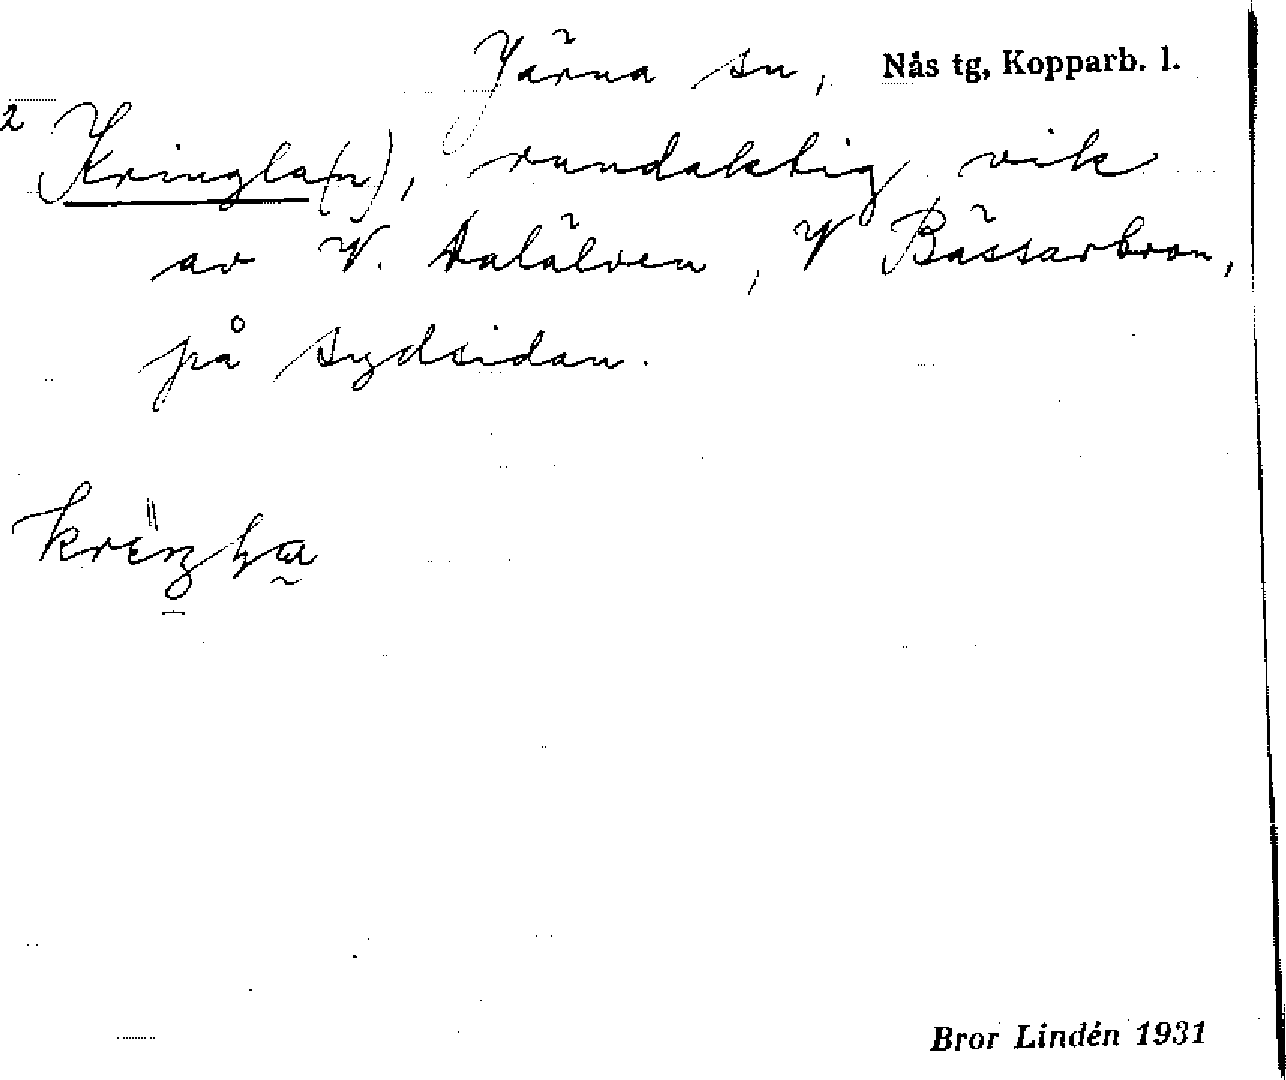 Järna sn, Nås tg, Kopparb. l.
2 Kringla(n), rundaktig vik
av V. Dalälven, V Bässarbron,
på sydsidan.
Bror Lindén 1931